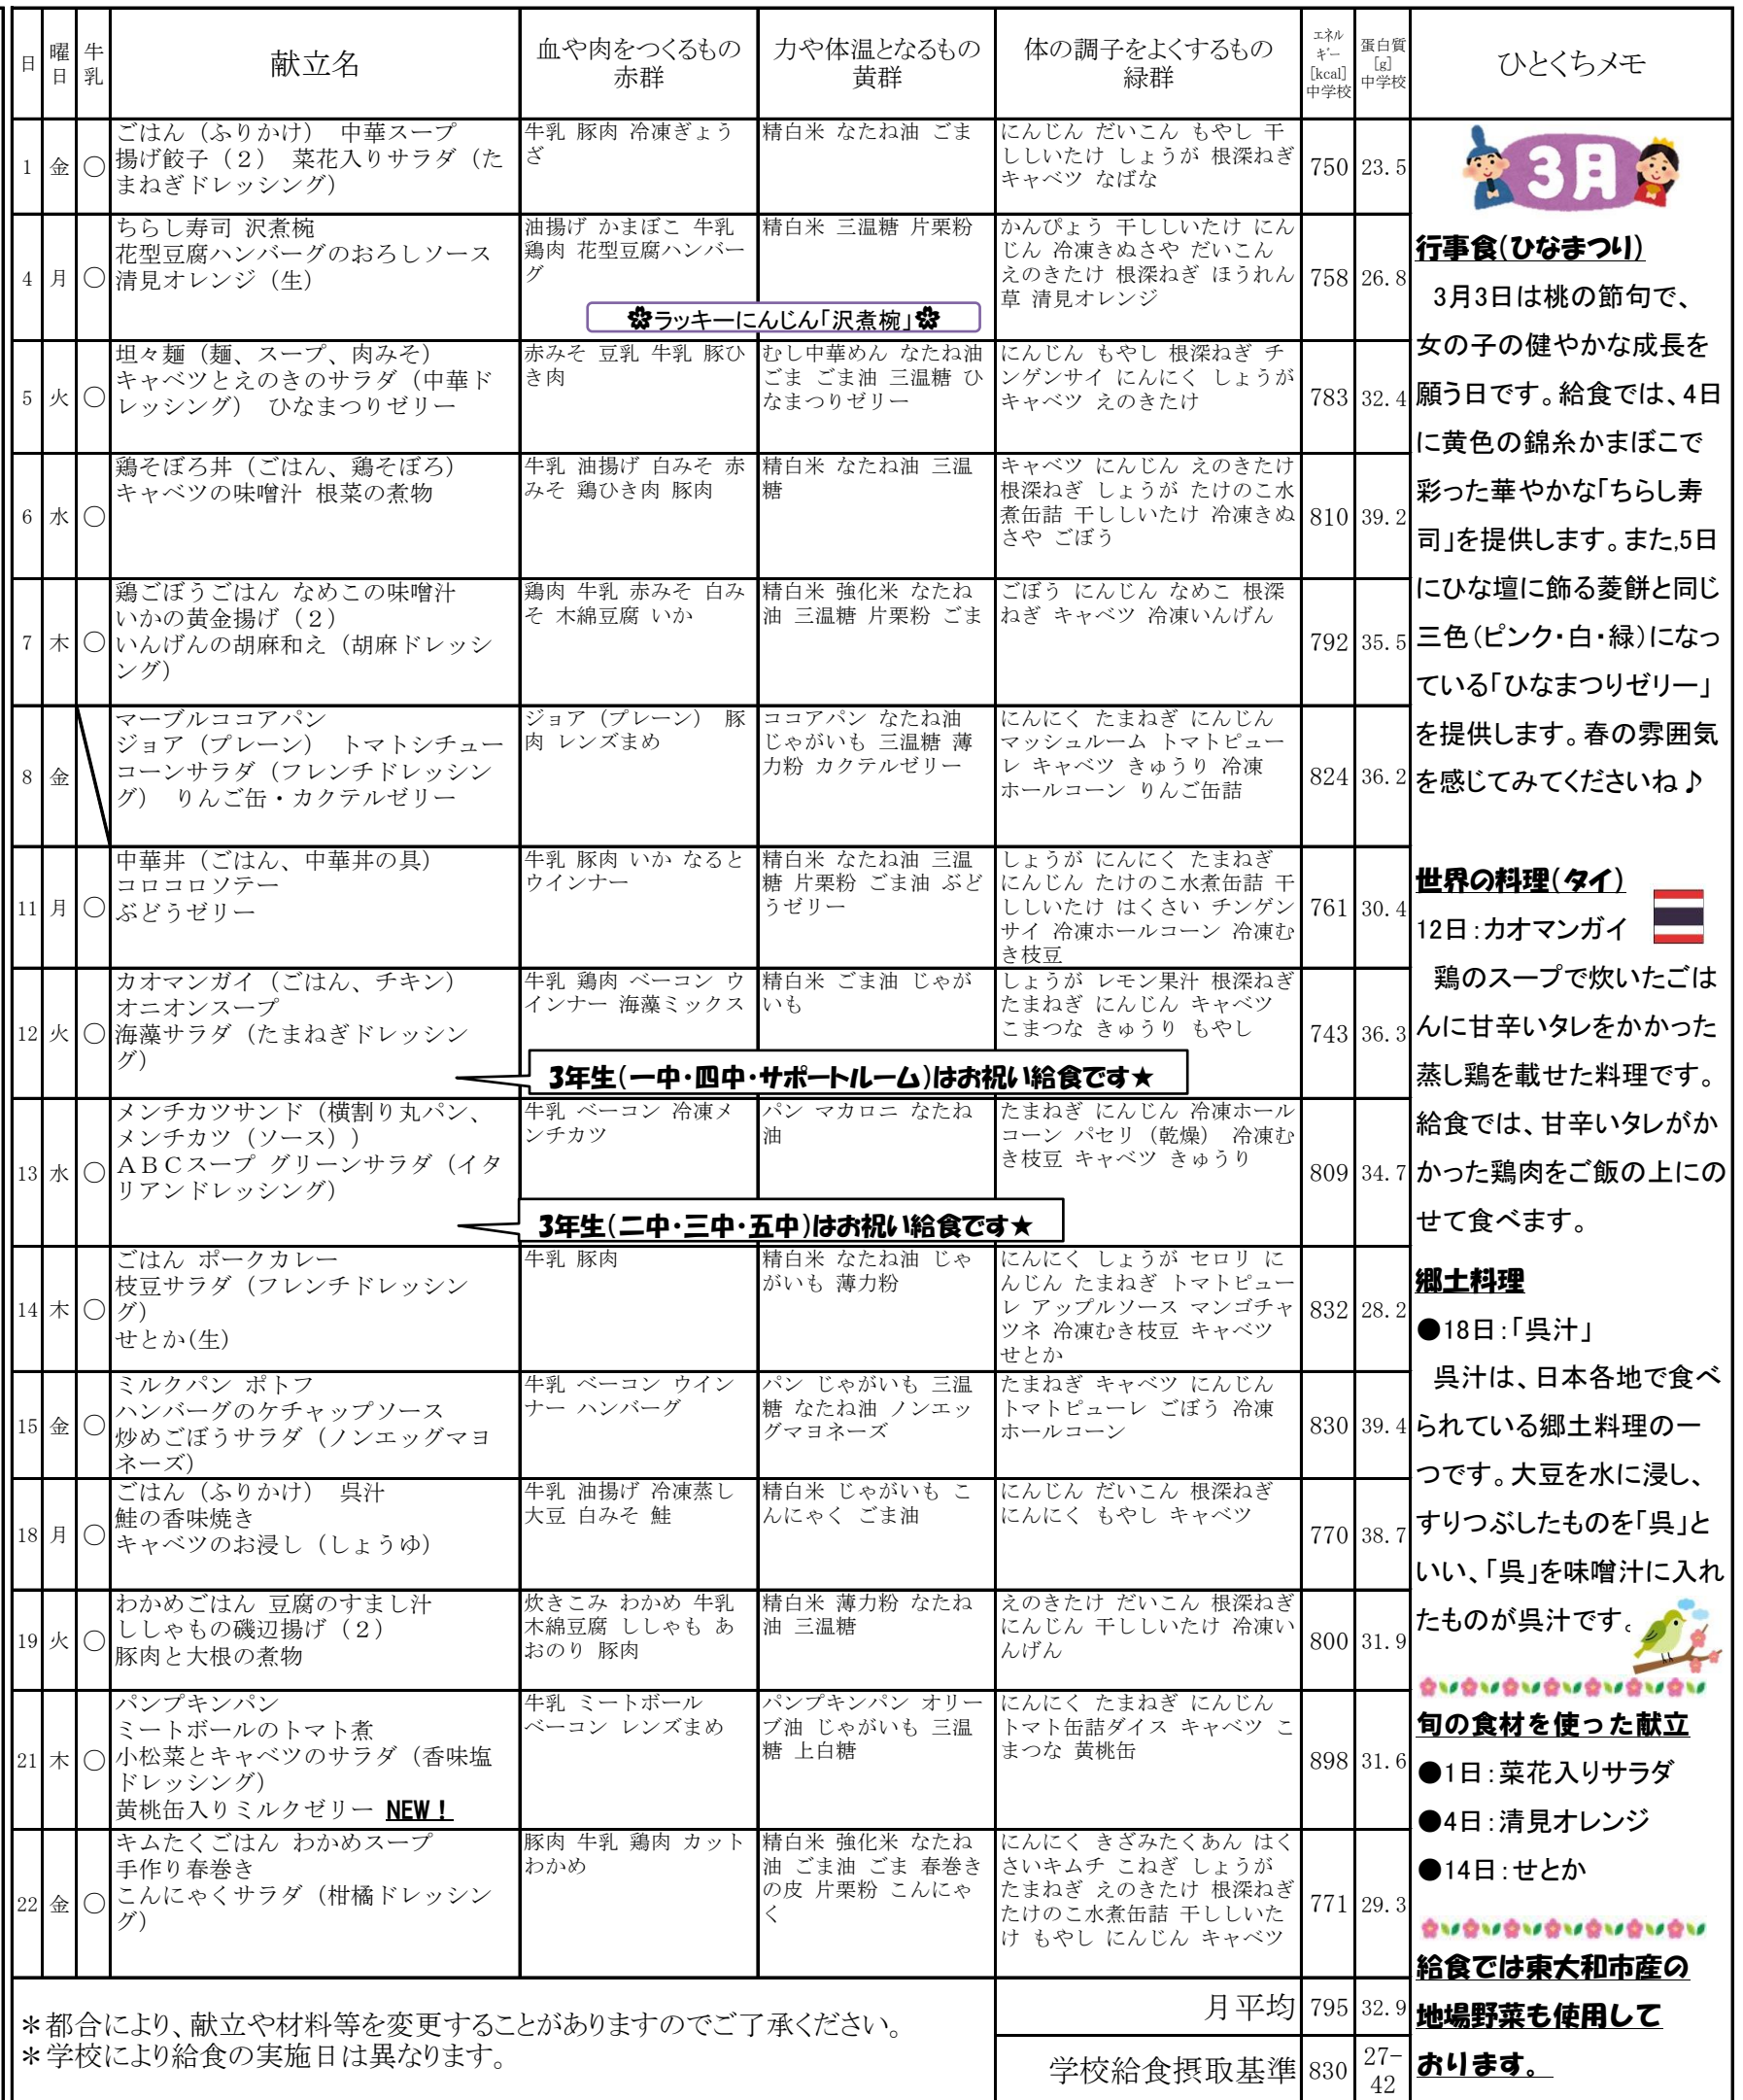 日 曜日 牛乳 献立名 血や肉をつくるもの 赤群 力や体温となるもの 黄群 体の調子をよくするもの 緑群 エネルギー [kcal] 中学校 蛋白質 [g] 中学校 ひとくちメモ
1 金 〇
ごはん（ふりかけ） 中華スープ
揚げ餃子（２） 菜花入りサラダ（た
まねぎドレッシング）
牛乳 豚肉 冷凍ぎょう
ざ
精白米 なたね油 ごま
にんじん だいこん もやし 干
ししいたけ しょうが 根深ねぎ
キャベツ なばな
750 23.5
4 月 〇
ちらし寿司 沢煮椀
花型豆腐ハンバーグのおろしソース
清見オレンジ（生）
油揚げ かまぼこ 牛乳
鶏肉 花型豆腐ハンバー
グ
精白米 三温糖 片栗粉
かんぴょう 干ししいたけ にん
じん 冷凍きぬさや だいこん
えのきたけ 根深ねぎ ほうれん
草 清見オレンジ
758 26.8
ラッキーにんじん「沢煮椀」
5 火 〇
坦々麺（麺、スープ、肉みそ）
キャベツとえのきのサラダ（中華ド
レッシング） ひなまつりゼリー
赤みそ 豆乳 牛乳 豚ひ
き肉
むし中華めん なたね油
ごま ごま油 三温糖 ひ
なまつりゼリー
にんじん もやし 根深ねぎ チ
ンゲンサイ にんにく しょうが
キャベツ えのきたけ
783 32.4
6 水 〇
鶏そぼろ丼（ごはん、鶏そぼろ）
キャベツの味噌汁 根菜の煮物
牛乳 油揚げ 白みそ 赤
みそ 鶏ひき肉 豚肉
精白米 なたね油 三温
糖
キャベツ にんじん えのきたけ
根深ねぎ しょうが たけのこ水
煮缶詰 干ししいたけ 冷凍きぬ
さや ごぼう
810 39.2
7 木 〇
鶏ごぼうごはん なめこの味噌汁
いかの黄金揚げ（２）
いんげんの胡麻和え（胡麻ドレッシ
ング）
鶏肉 牛乳 赤みそ 白み
そ 木綿豆腐 いか
精白米 強化米 なたね
油 三温糖 片栗粉 ごま
ごぼう にんじん なめこ 根深
ねぎ キャベツ 冷凍いんげん
792 35.5
8 金
マーブルココアパン
ジョア（プレーン） トマトシチュー
コーンサラダ（フレンチドレッシン
グ） りんご缶・カクテルゼリー
ジョア（プレーン） 豚
肉 レンズまめ
ココアパン なたね油
じゃがいも 三温糖 薄
力粉 カクテルゼリー
にんにく たまねぎ にんじん
マッシュルーム トマトピュー
レ キャベツ きゅうり 冷凍
ホールコーン りんご缶詰
824 36.2
11 月 〇
中華丼（ごはん、中華丼の具）
コロコロソテー
ぶどうゼリー
牛乳 豚肉 いか なると
ウインナー
精白米 なたね油 三温
糖 片栗粉 ごま油 ぶど
うゼリー
しょうが にんにく たまねぎ
にんじん たけのこ水煮缶詰 干
ししいたけ はくさい チンゲン
サイ 冷凍ホールコーン 冷凍む
き枝豆
761 30.4
12 火 〇
カオマンガイ（ごはん、チキン）
オニオンスープ
海藻サラダ（たまねぎドレッシン
グ）
牛乳 鶏肉 ベーコン ウ
インナー 海藻ミックス
精白米 ごま油 じゃが
いも
しょうが レモン果汁 根深ねぎ
たまねぎ にんじん キャベツ
こまつな きゅうり もやし
743 36.3
3年生(一中・四中・サポートルーム)はお祝い給食です★
13 水 〇
メンチカツサンド（横割り丸パン、
メンチカツ（ソース））
ＡＢＣスープ グリーンサラダ（イタ
リアンドレッシング）
牛乳 ベーコン 冷凍メ
ンチカツ
パン マカロニ なたね
油
たまねぎ にんじん 冷凍ホール
コーン パセリ（乾燥） 冷凍む
き枝豆 キャベツ きゅうり
809 34.7
3年生(二中・三中・五中)はお祝い給食です★
14 木 〇
ごはん ポークカレー
枝豆サラダ（フレンチドレッシン
グ）
せとか(生)
牛乳 豚肉
精白米 なたね油 じゃ
がいも 薄力粉
にんにく しょうが セロリ に
んじん たまねぎ トマトピュー
レ アップルソース マンゴチャ
ツネ 冷凍むき枝豆 キャベツ
せとか
832 28.2
15 金 〇
ミルクパン ポトフ
ハンバーグのケチャップソース
炒めごぼうサラダ（ノンエッグマヨ
ネーズ）
牛乳 ベーコン ウイン
ナー ハンバーグ
パン じゃがいも 三温
糖 なたね油 ノンエッ
グマヨネーズ
たまねぎ キャベツ にんじん
トマトピューレ ごぼう 冷凍
ホールコーン
830 39.4
18 月 〇
ごはん（ふりかけ） 呉汁
鮭の香味焼き
キャベツのお浸し（しょうゆ）
牛乳 油揚げ 冷凍蒸し
大豆 白みそ 鮭
精白米 じゃがいも こ
んにゃく ごま油
にんじん だいこん 根深ねぎ
にんにく もやし キャベツ
770 38.7
19 火 〇
わかめごはん 豆腐のすまし汁
ししゃもの磯辺揚げ（２）
豚肉と大根の煮物
炊きこみ わかめ 牛乳
木綿豆腐 ししゃも あ
おのり 豚肉
精白米 薄力粉 なたね
油 三温糖
えのきたけ だいこん 根深ねぎ
にんじん 干ししいたけ 冷凍い
んげん
800 31.9
21 木 〇
パンプキンパン
ミートボールのトマト煮
小松菜とキャベツのサラダ（香味塩
ドレッシング）
黄桃缶入りミルクゼリー NEW！
牛乳 ミートボール
ベーコン レンズまめ
パンプキンパン オリー
ブ油 じゃがいも 三温
糖 上白糖
にんにく たまねぎ にんじん
トマト缶詰ダイス キャベツ こ
まつな 黄桃缶
898 31.6
22 金 〇
キムたくごはん わかめスープ
手作り春巻き
こんにゃくサラダ（柑橘ドレッシン
グ）
豚肉 牛乳 鶏肉 カット
わかめ
精白米 強化米 なたね
油 ごま油 ごま 春巻き
の皮 片栗粉 こんにゃ
く
にんにく きざみたくあん はく
さいキムチ こねぎ しょうが
たまねぎ えのきたけ 根深ねぎ
たけのこ水煮缶詰 干ししいた
け もやし にんじん キャベツ
771 29.3
＊都合により、献立や材料等を変更することがありますのでご了承ください。
＊学校により給食の実施日は異なります。
月平均 795 32.9
学校給食摂取基準 830 27-42
3月
行事食(ひなまつり)
3月3日は桃の節句で、
女の子の健やかな成長を
願う日です。給食では、4日
に黄色の錦糸かまぼこで
彩った華やかな「ちらし寿
司」を提供します。また,5日
にひな壇に飾る菱餅と同じ
三色（ピンク・白・緑）になっ
ている「ひなまつりゼリー」
を提供します。春の雰囲気
を感じてみてくださいね♪
世界の料理(タイ)
12日：カオマンガイ
鶏のスープで炊いたごは
んに甘辛いタレをかかった
蒸し鶏を載せた料理です。
給食では、甘辛いタレがか
かった鶏肉をご飯の上にの
せて食べます。
郷土料理
●18日：「呉汁」
呉汁は、日本各地で食べ
られている郷土料理の一
つです。大豆を水に浸し、
すりつぶしたものを「呉」と
いい、「呉」を味噌汁に入れ
たものが呉汁です。
旬の食材を使った献立
●1日：菜花入りサラダ
●4日：清見オレンジ
●14日：せとか
給食では東大和市産の
地場野菜も使用して
おります。